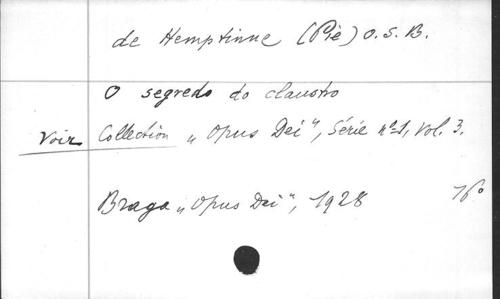 de Hemptinne (Pie) O.S.B.
O segredo do claustro
Voir Collection „Opus Dei", Série nº1, Vol. 3.
Braga „Opus Dei", 1928 16º